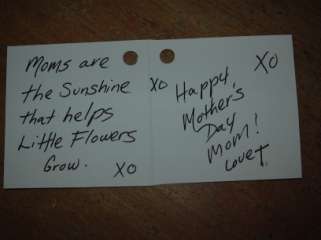 Moms are
the Sunshine
that helps
Little Flowers
Grow.
XO
XO
XO
Happy
Mother's
Day
Mom!
Love T.